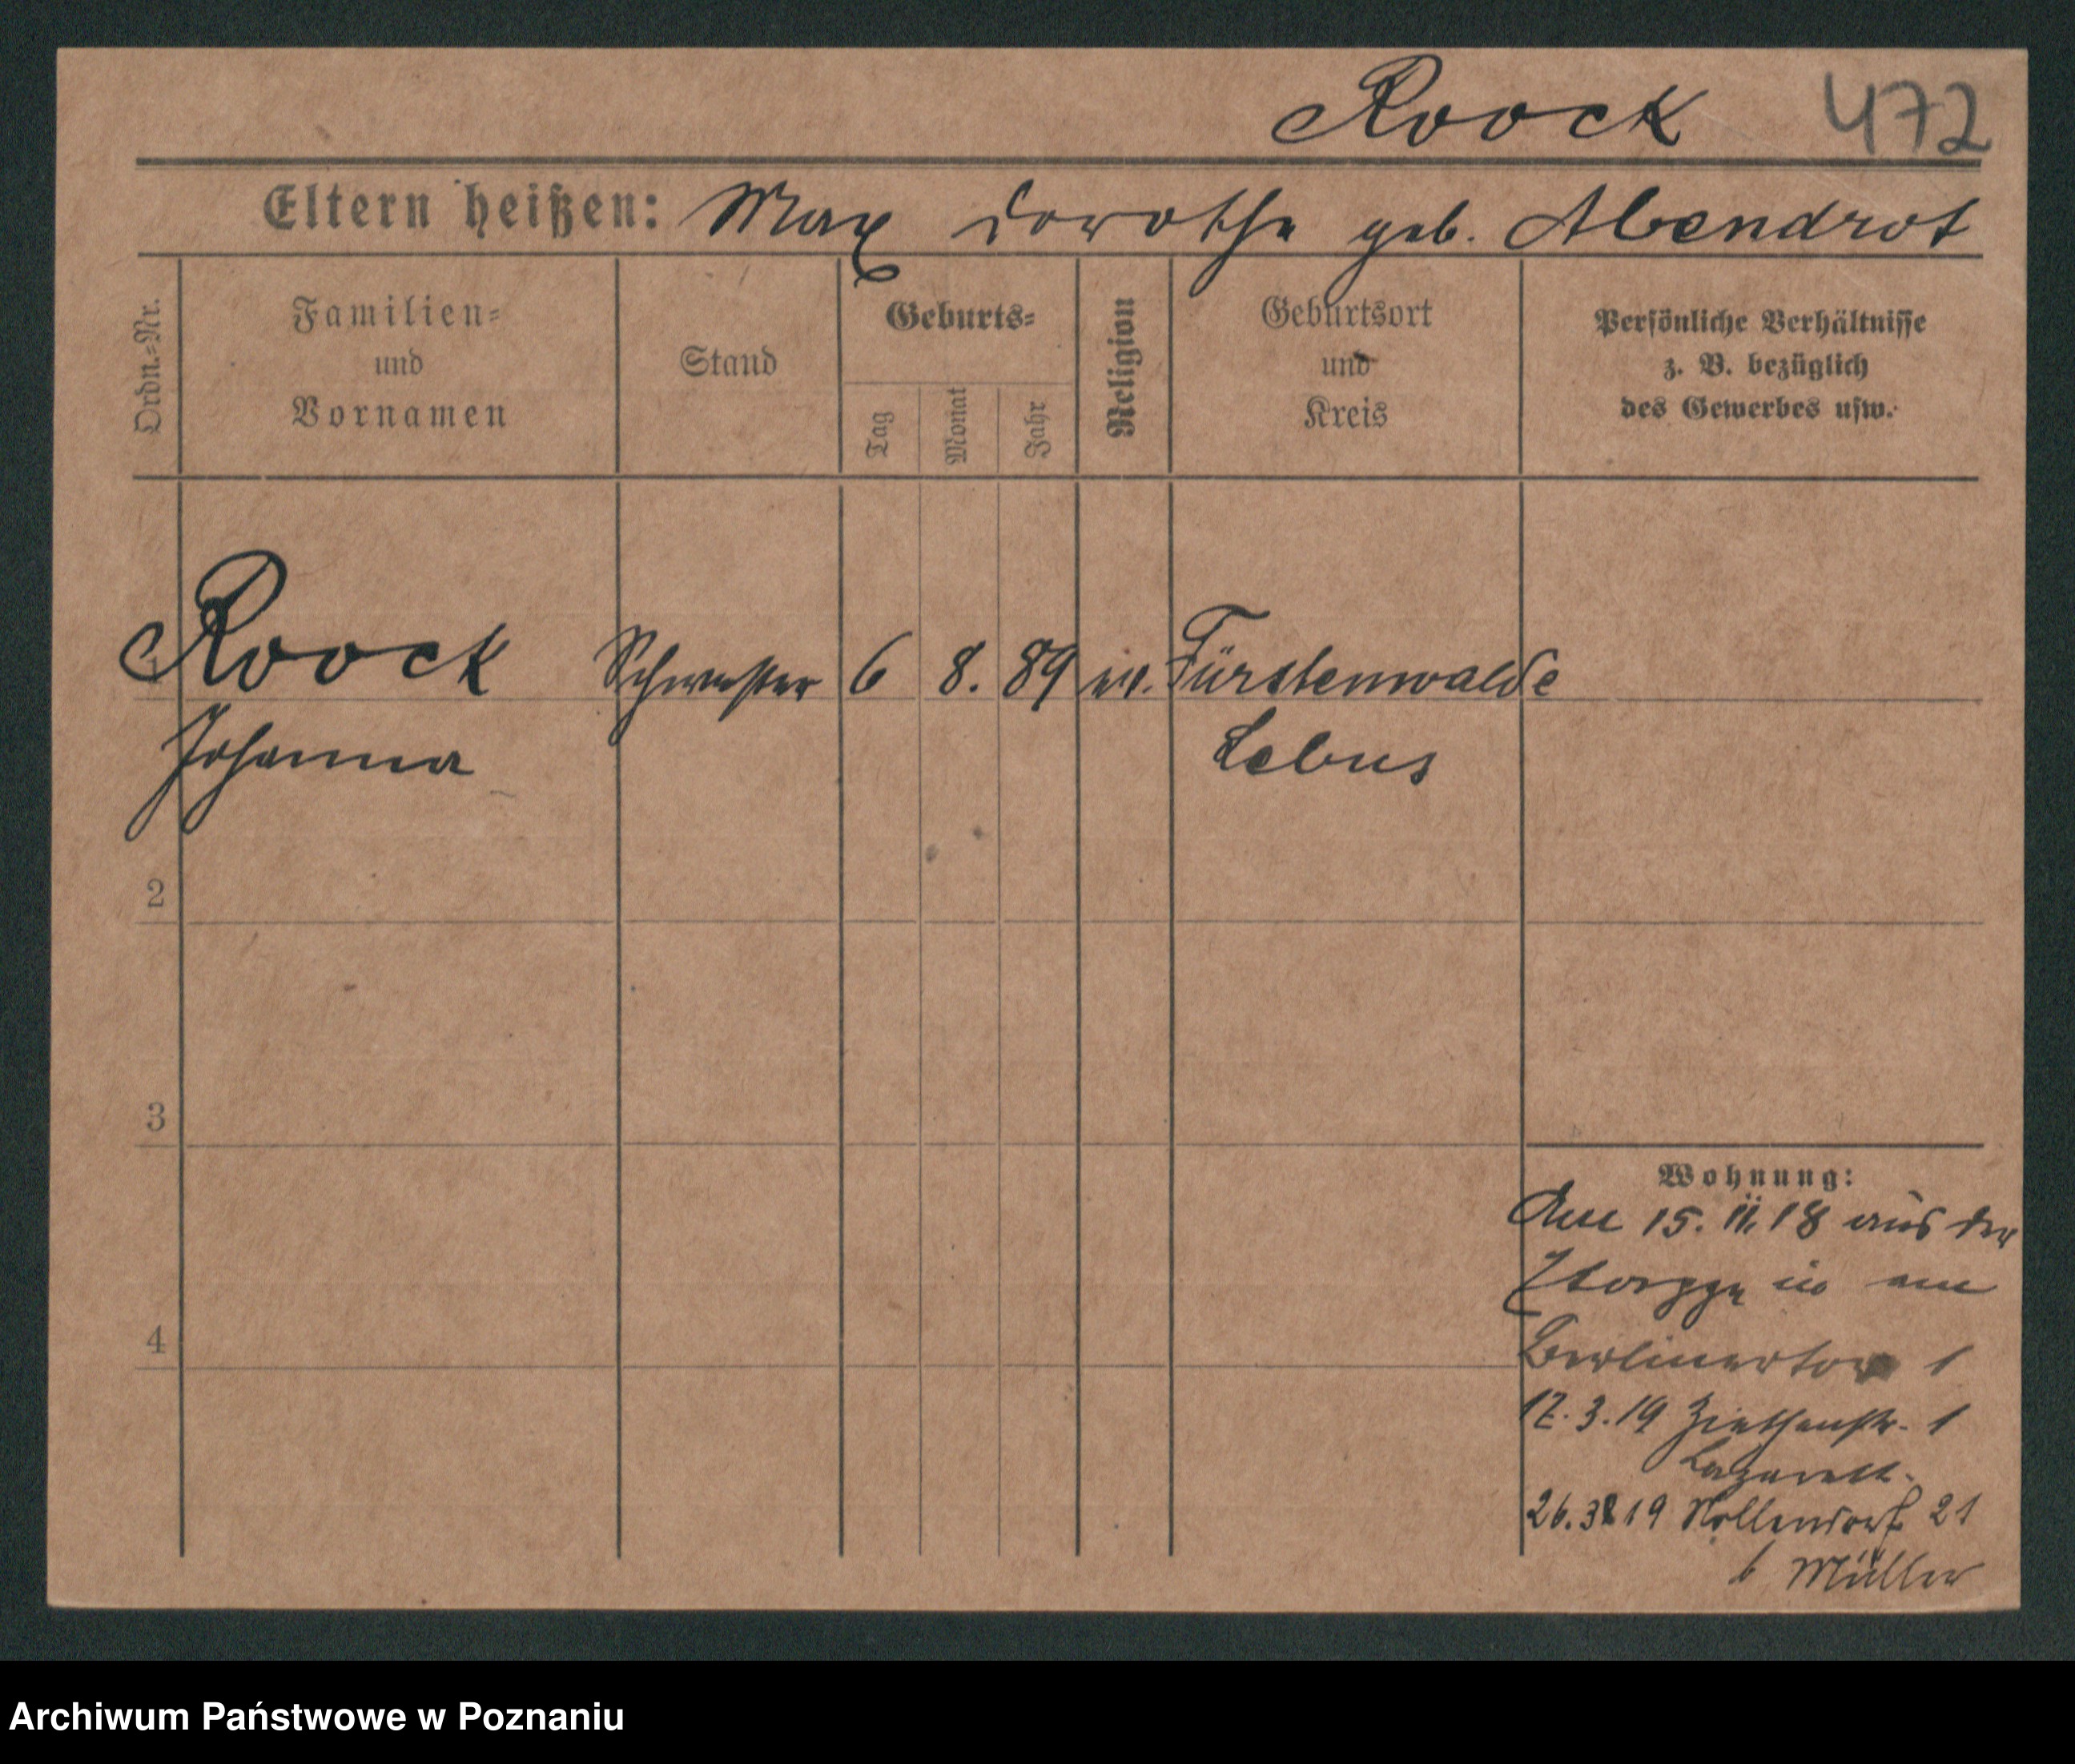 Roock 472
Eltern heißen: Max Dorothe geb. Abendrot
Ordn.-Nr.
Familien-
und
Vornamen
Stand
Geburts-
Tag
Monat
Jahr
Religion
Geburtsort
und
Kreis
Persönliche Verhältnisse
z. B. bezüglich
des Gewerbes usw.
1 Roock Schwester 6 8. 89 ev. Fürstenwalde
Johanna Lebus
2
3
4
Wohnung:
15. 11. 18 aus der
am
Berlinertor 1
17. 3. 19 Ziethenstr. 1
Lazarett.
26. 3 19 Nollendorf 21
b Müller
Archiwum Państwowe w Poznaniu